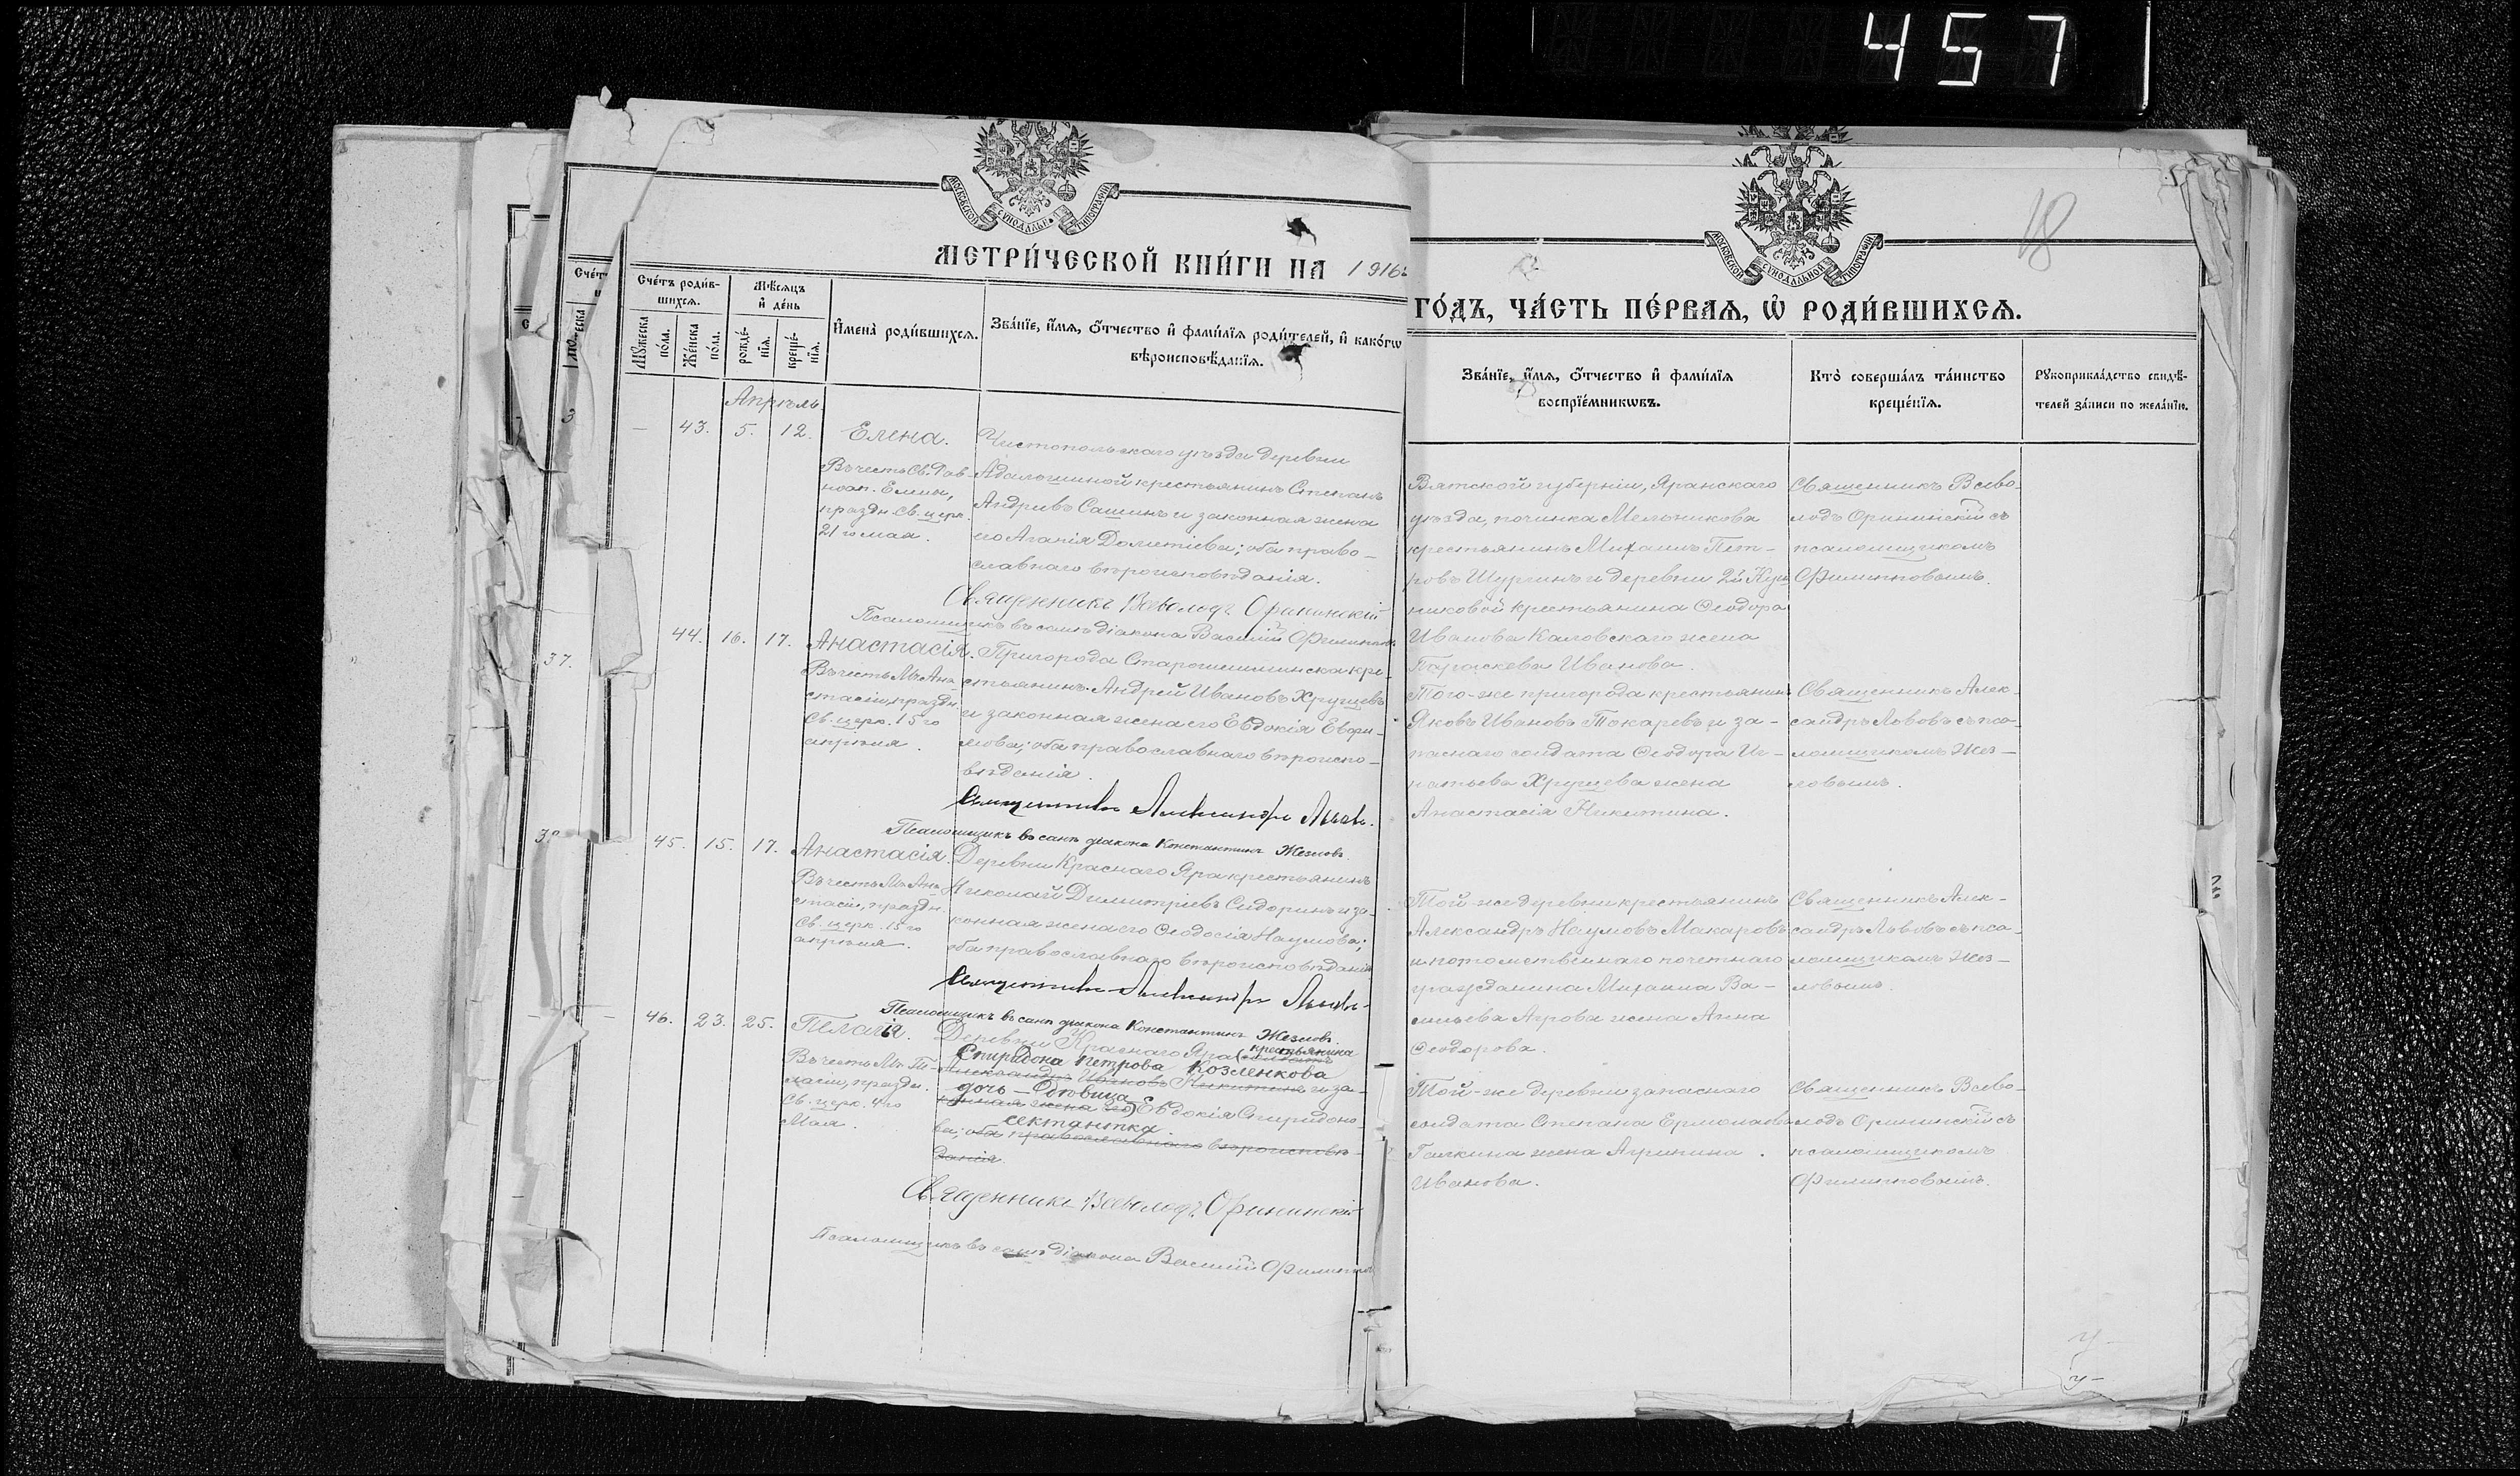 457
18
МОСКОВСКОЙ СѴНОДАЛЬН. ТИПОГРАФІИ
МОСКОВСКОЙ СѴНОДАЛЬНОЙ ТИПОГРАФІИ
МЕТРИ́ЧЕСКОЙ КНИ́ГИ НА 1916 г.
ГО́ДЪ, ЧА́СТЬ ПЕ́РВАЯ, Ѽ РОДИ́ВШИХСЯ.
Сче́тъ роди́в-
шихся.
Мꙋ́жеска по́ла.
Же́нска по́ла.
Мѣ́сяцъ
и҆ де́нь
рожде́-
нїѧ.
креще́-
нїѧ.
И҆мена̀ роди́вшихсѧ.
Зва́нїе, и҆́мѧ, ѻ҆́тчество и҆ фами́лїѧ роди́телей, и҆ како́гѡ
вѣроисповѣ́данїѧ.
Зва́нїе, и҆́мѧ, ѻ҆́тчество и҆ фами́лїѧ
воспрїе́мникѡвъ.
Кто̀ соверша́лъ та́инство
креще́нїѧ.
Рꙋкоприкла́дство свидѣ́-
телей за́писи по жела́нїю.
Апрѣль.
— 43. 5. 12. Елена.
Въ честь Св. Рав-
ноап. Елены,
праздн. Св. церк.
21 го мая.
Чистопольскаго уѣзда деревни
крестьянинъ Степанъ
Андреевъ Сашинъ и законная жена
его Агапія Дометіева; оба право-
славнаго вѣроисповѣданія.
Священникъ Всеволодъ Орининскій
Псаломщикъ въ санѣ діакона Василій Филиппов
Вятской губерніи, Яранскаго
уѣзда, починка Мельникова
крестьянинъ Михаилъ Пет-
ровъ Шургинъ и деревни 2й
никовой крестьянина Ѳеодора
Иванова Каловскаго жена
Параскева Иванова.
Священникъ Всево-
лодъ Орининскій съ
псаломщикомъ
Филипповымъ.
37.
44. 16. 17. Анастасія.
Въ честь Мц. Ана-
стасіи, праздн.
Св. церк. 15 го
апрѣля.
Пригорода Старошешминска кре-
стьянинъ Андрей Ивановъ Хрущевъ
и законная жена его Евдокія
мова; оба православнаго вѣроиспо-
вѣданія.
Священникъ Александръ Львовъ.
Псаломщикъ въ санѣ діакона Константинъ Жезловъ.
Того-же пригорода крестьянинъ
Яковъ Ивановъ Токаревъ и за-
паснаго солдата Ѳеодора Иг-
натьева Хрущева жена
Анастасія Никитина.
Священникъ Алек-
сандръ Львовъ съ пса-
ломщикомъ Жез-
ловымъ.
45. 15. 17. Анастасія.
Въ честь Мц. Ана-
стасіи, праздн.
Св. церк. 15 го
апрѣля.
Деревни Краснаго Яра крестьянинъ
Николай Димитріевъ Сидоринъ и за-
конная жена его Ѳеодосія Наумова;
оба православнаго вѣроисповѣданія
Священникъ Александръ Львовъ.
Псаломщикъ въ санѣ діакона Константинъ Жезловъ.
Той-же деревни крестьянинъ
Александръ Наумовъ Макаровъ
и потомственнаго почетнаго
гражданина Михаила Ва-
сильева Агрова жена Анна
Ѳеодорова.
Священникъ Алек-
сандръ Львовъ съ пса-
ломщикомъ Жез-
ловымъ.
— 46. 23. 25. Пелагія.
Въ честь Мц. Пе-
лагіи, праздн.
Св. церк. 4 го
Мая.
Деревни Краснаго Яра (крестьянина
Спиридона Петрова Козленкова
Александръ Ивановъ Никитинъ и за-
дочь — вдовица
конная жена его) Евдокія Спиридоно-
сектантка.
ва; оба православнаго вѣроисповѣ-
данія.
Священникъ Всеволодъ Орининскій
Псаломщикъ въ санѣ діакона Василій Филиппов
Той-же деревни запаснаго
солдата Степана Ермолаева
Галкина жена Агриппина
Иванова.
Священникъ Всево-
лодъ Орининскій съ
псаломщикомъ
Филипповымъ.